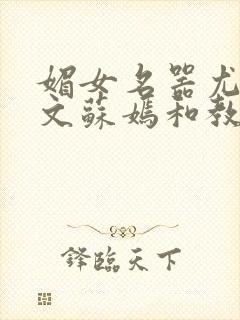 媚女名器尤
文蘇媽和教
鋒臨天下